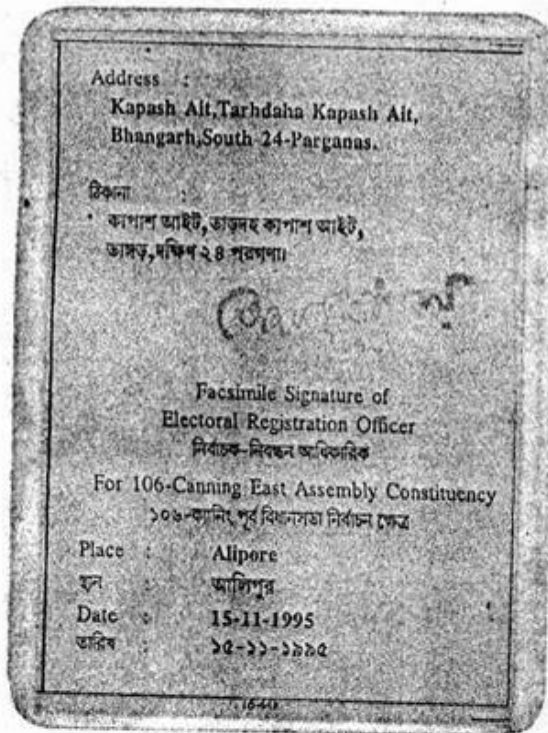 Address :
Kapash Ait,Tarhdaha Kapash Ait,
Bhangarh,South 24-Parganas.
ঠিকানা :
কাপাশ আইট,তাড়দহ কাপাশ আইট,
ভাঙ্গড়,দক্ষিণ ২৪ পরগণা।
Facsimile Signature of
Electoral Registration Officer
নির্বাচক-নিবন্ধন আধিকারিক
For 106-Canning East Assembly Constituency
১০৬-ক্যানিং পূর্ব বিধানসভা নির্বাচন ক্ষেত্র
Place : Alipore
স্থান : আলিপুর
Date : 15-11-1995
তারিখ : ১৫-১১-১৯৯৫